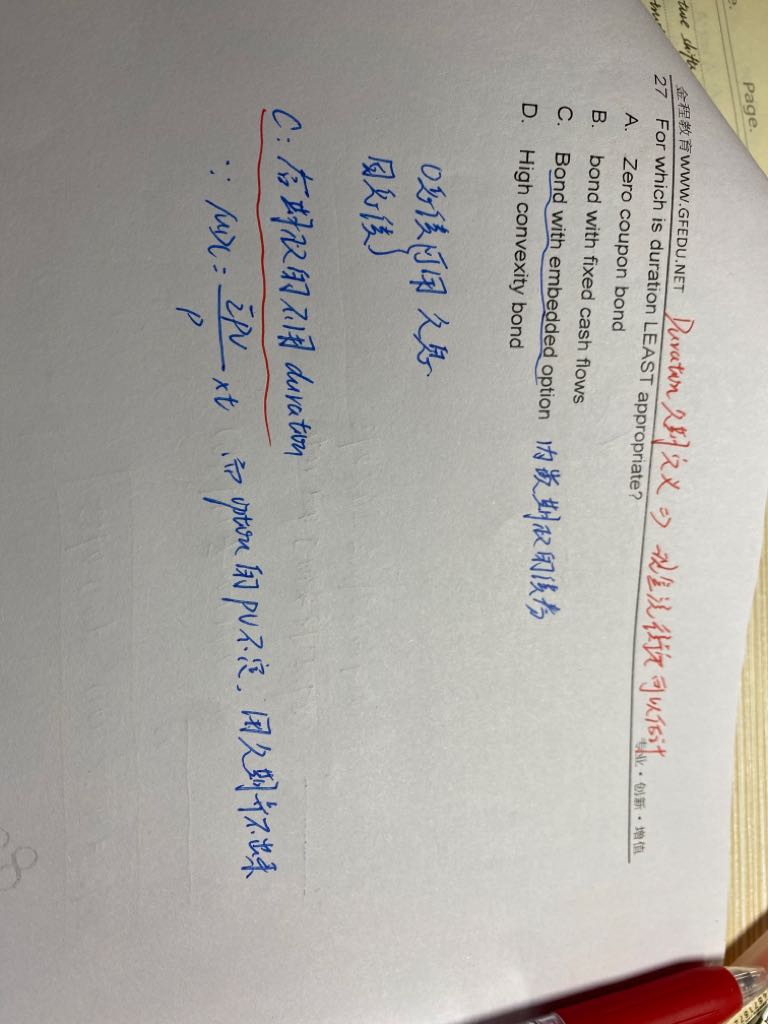 Page.
金程教育WWW.GFEDU.NET
专业·创新·增值
Duration 久期定义 => 现金流
可以估计
27 For which is duration LEAST appropriate?
A. Zero coupon bond
B. bond with fixed cash flows
C. Bond with embedded option 内嵌期权的债券
D. High convexity bond
0息债
固息债 } 可用 久期.
C: 含期权的不用 duration
∵ = ΣPV/P xt 而 option 的 PV 不定, 用久期算不出来